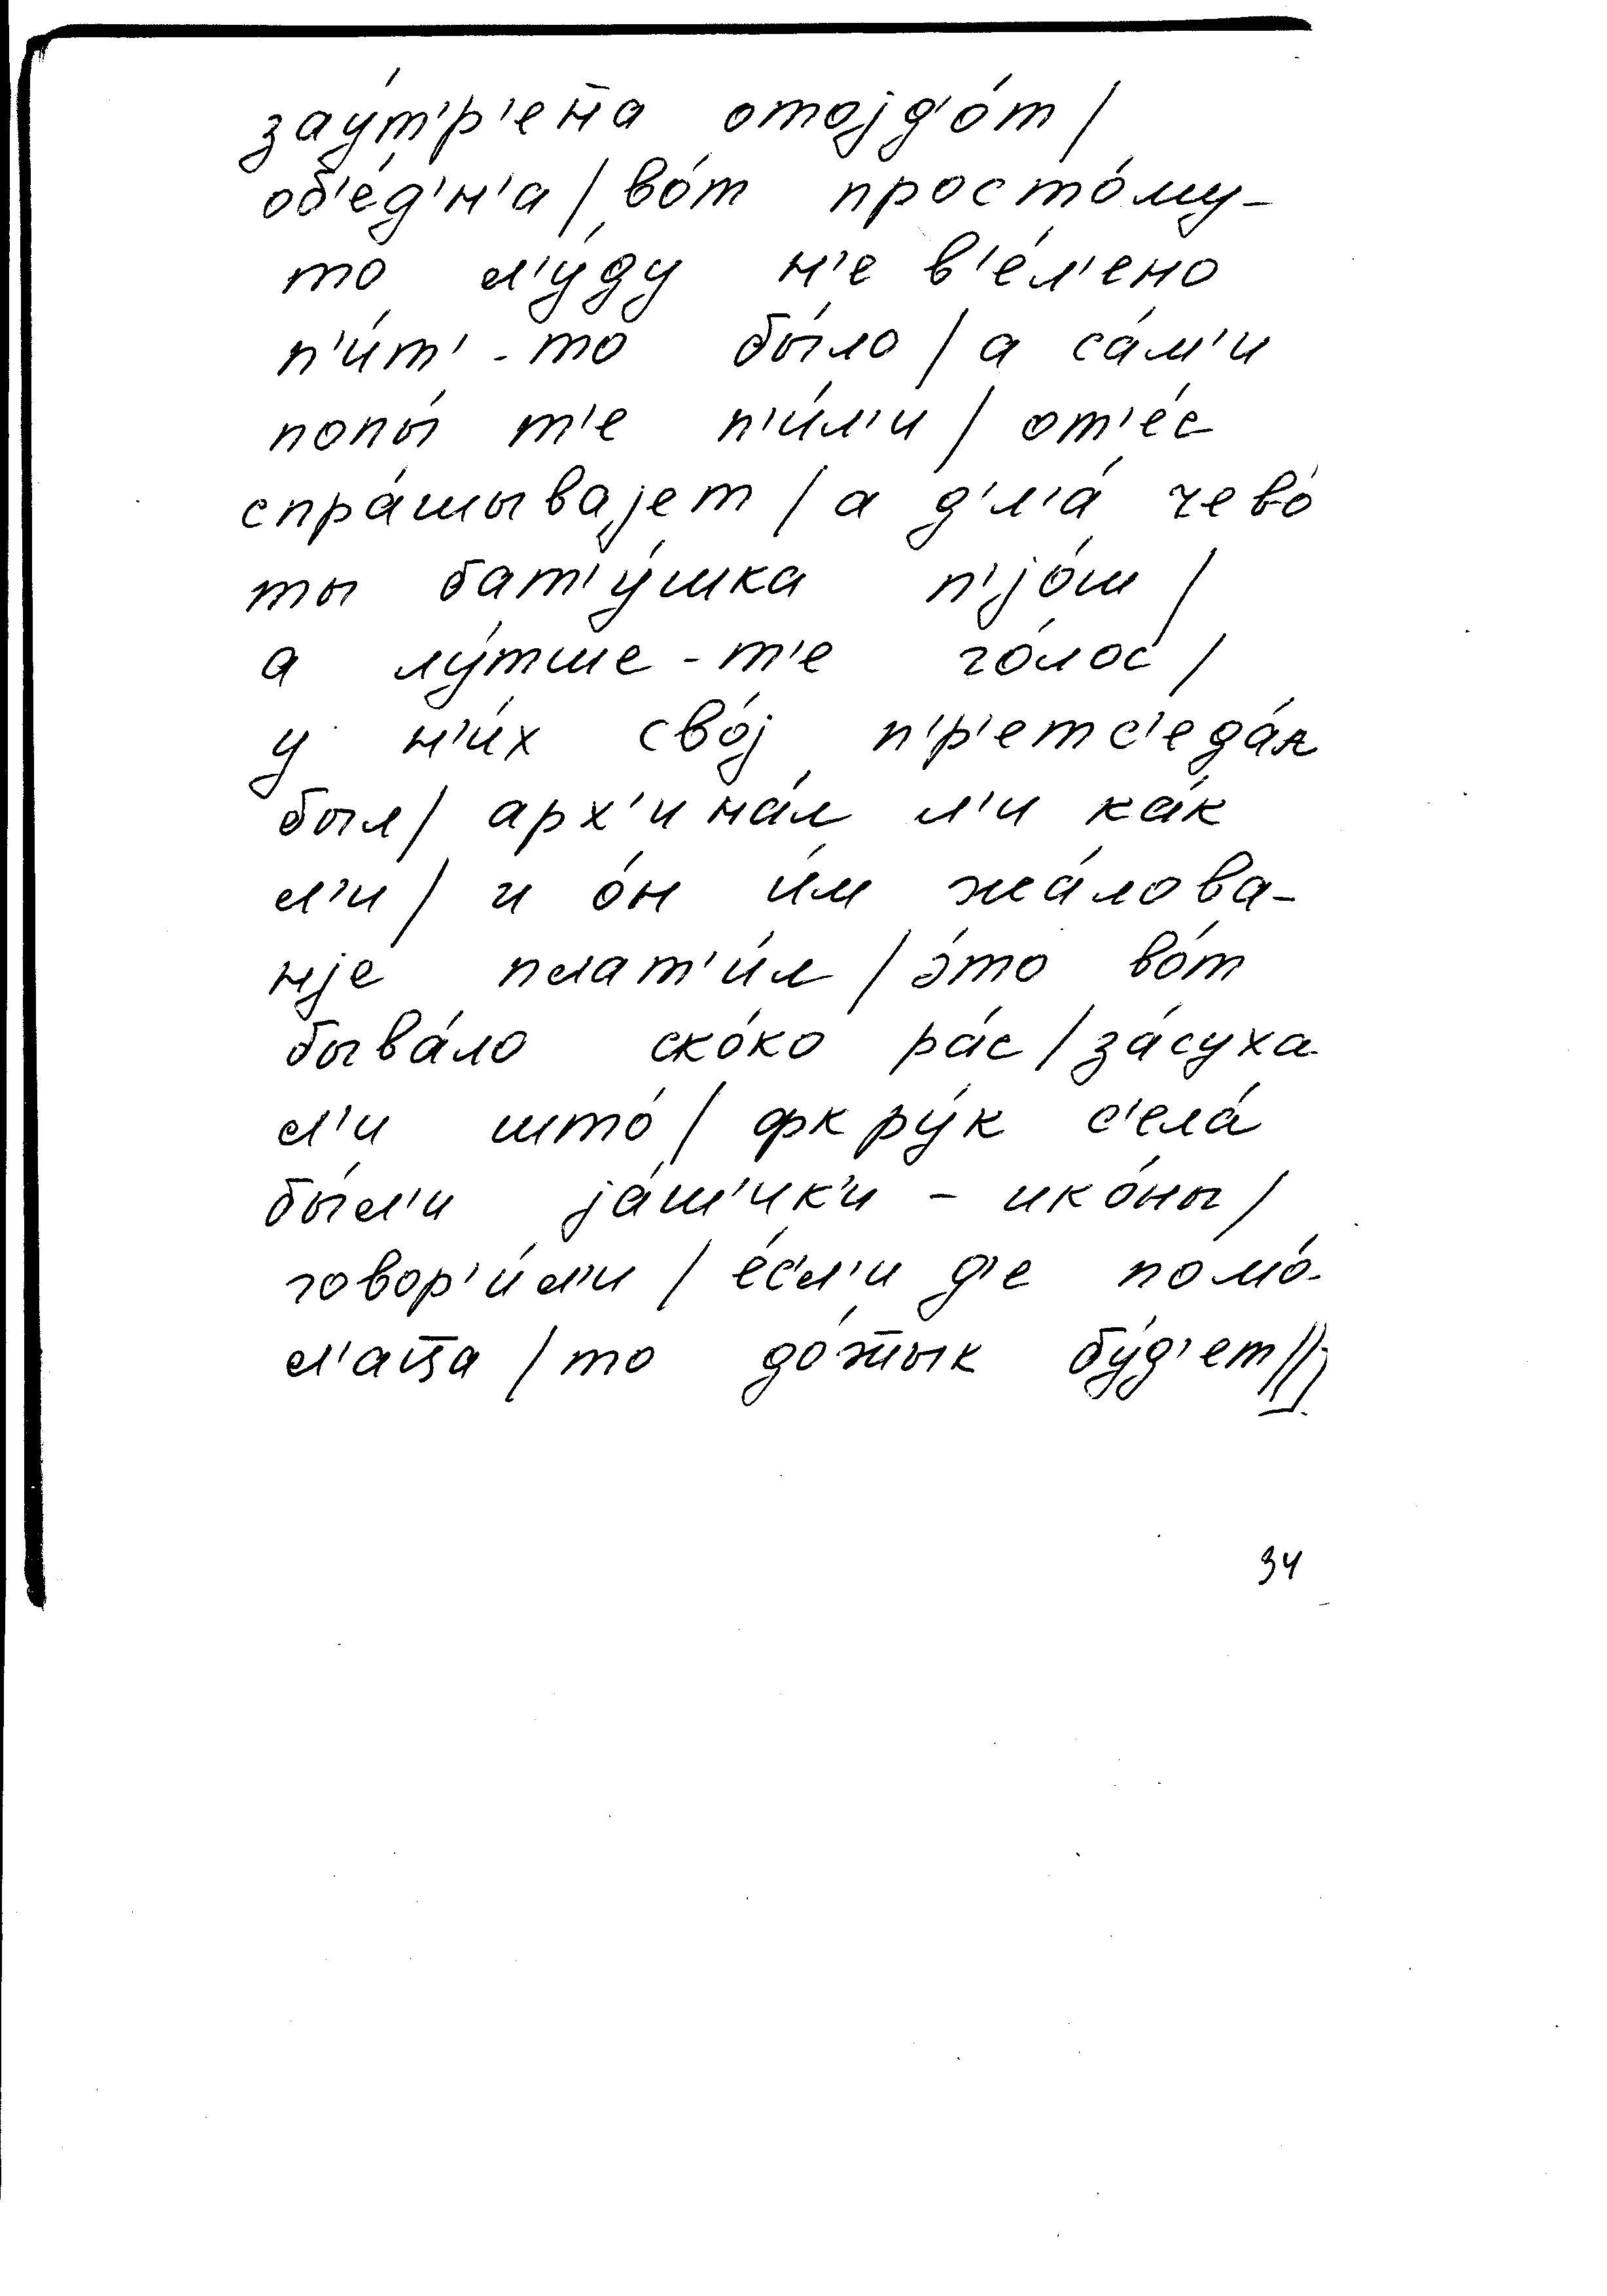 зау́т'р'ен̄а отојд'о́т /
об'е́д'н'а / во́т просто́му-
то л'у́ду н'е в'е́л'ено
п'и́т'-то бы́ло / а са́м'и
попы́ т'е п'и́л'и / от'е́с
спра́шывајет / а д'л'а́ чево́
ты бат'у́шка п'јо́ш /
а лу́тше-т'е го́лос /
у н'и́х сво́ј п'р'етс'еда́л
был / арх'ина́л л'и ка́к
л'и / и о́н и́м жа́лова-
нје плат'и́л / э́то во́т
быва́ло ско́ко ра́с / за́суха
л'и што́ / фкру́к с'ела́
бы́л'и ја́ш'ик'и - ико́ны /
говор'и́л'и / е́с'л'и д'е помо́-
л'ац̄а / то до́жтык бу́д'ет //
34